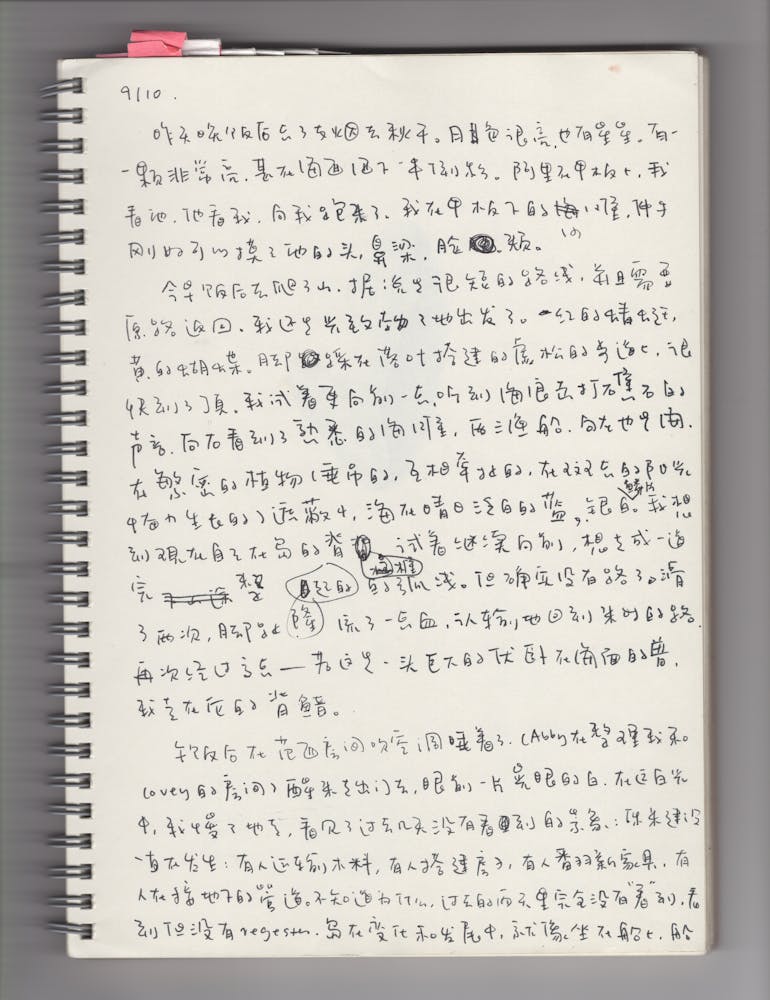 9/10.
昨天晚饭后去了友火因去秋千。月色很亮,也有星星。有一
一颗非常亮,甚在海面洒下一串倒影。阿里在甲板上,我
看他,他看我,向我跑来了。我在甲板下的 伸手
刚好可以摸了他的头,鼻梁,脸颊。
今早饭后去爬了山,据说是很短的路线,并且需要
原路返回,我还是兴致勃勃地出发了。红的蜻蜓,
黄的蝴蝶。脚踩在落叶搭建的虚松的步道上,很
快到了顶。我试着再向前一点,听到海浪击打石礁石的
声音。向右看到了熟悉的海 ,两三渔船。向左也是海,
在繁密的植物(垂吊的,互相牵扯的,在 的阳光
中奋力生长的)遮蔽中,海在晴日泛白的蓝,银白鳞片。我想
到现在自己在岛的背 ,试着继续向前,想走成一道
完整 的弧线。但确实没有路了。滑
了两次,脚上 流了一点血,认输地回到来时的路,
再次经过高点——若这是一头巨大的伏卧在海面的兽,
我走在它的背鳍。
午饭后在范西房间吹空调睡着了。(Abby在整理我和
Covey的房间)醒来走出门去,眼前一片晃眼的白,在这白光
中,我慢了地走,看见了过去几天没有看到的景象:陈朱建设
一直在发生:有人运输木料,有人搭建房子,有人番羽新家具,有
人在接地下的管道。不知道为什么,过去的两天里完全没有“看”到,看
到但没有register。岛在变化和发展中,就像坐在船上,船